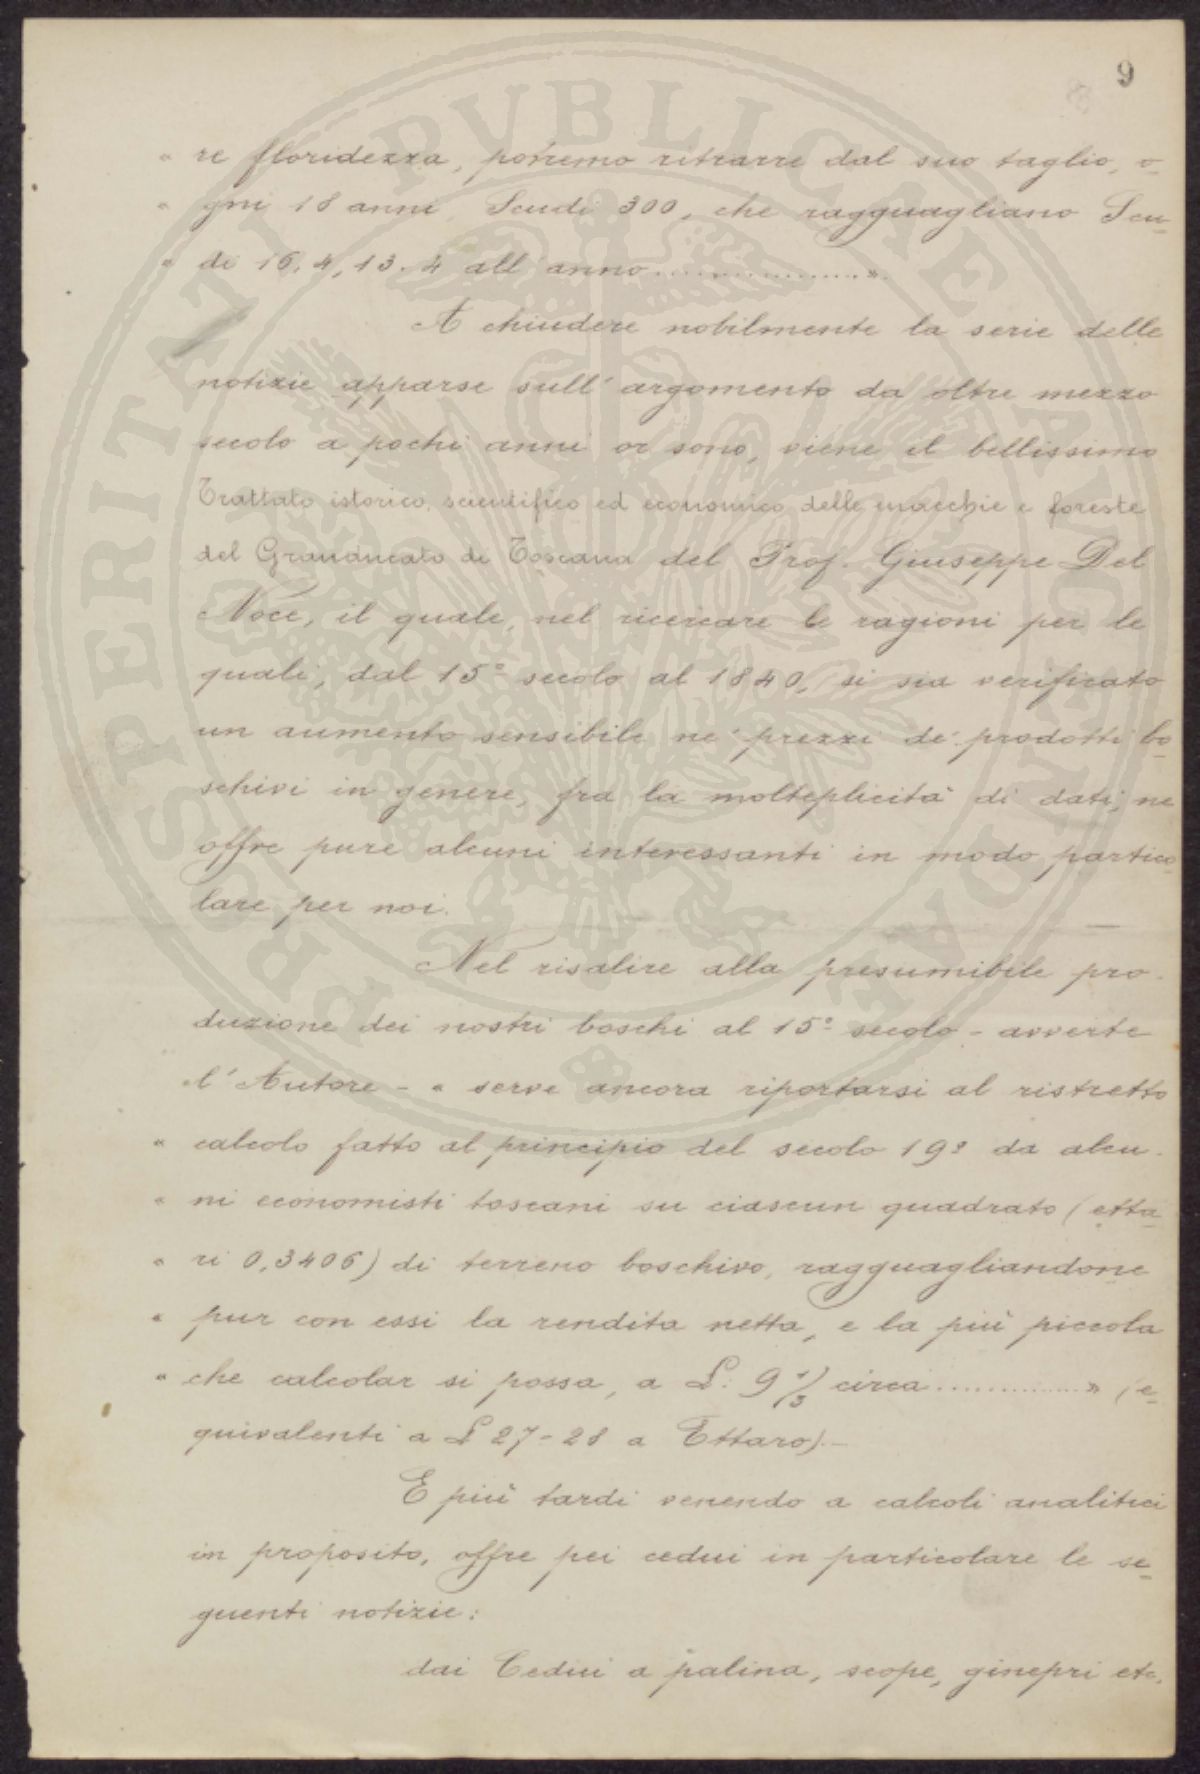 9
" re floridezza, potremo ritrarre dal suo taglio, o-
" gni 18 anni, Scudi 300, che ragguagliano Scu-
" di 16. 4, 13. 4 all'anno..................".
A chiudere nobilmente la serie delle
notizie apparse sull'argomento da oltre mezzo
secolo a pochi anni or sono, viene il bellissimo
Trattato istorico, scientifico ed economico delle macchie e foreste
del Granducato di Toscana del Prof. Giuseppe Del
Noce, il quale, nel ricercare le ragioni per le
quali, dal 15° secolo al 1840, si sia verificato
un aumento sensibile ne' prezzi de' prodotti bo-
schivi in genere, fra la molteplicità di dati, ne
offre pure alcuni interessanti in modo partico-
lare per noi.
Nel risalire alla presumibile pro-
duzione dei nostri boschi al 15° secolo - avverte
l'Autore - " serve ancora riportarsi al ristretto
" calcolo fatto al principio del secolo 19° da alcu-
" ni economisti toscani su ciascun quadrato (etta-
" ri 0,3406) di terreno boschivo, ragguagliandone
" pur con essi la rendita netta, e la più piccola
" che calcolar si possa, a £: 9 1/3 circa..............." (e-
quivalenti a £ 27-28 a Ettaro).-
E più tardi venendo a calcoli analitici
in proposito, offre pei cedui in particolare le se-
guenti notizie:
dai Cedui a palina, scope, ginepri etc.
PROSPERITATI PVBLICAE AVGENDAE